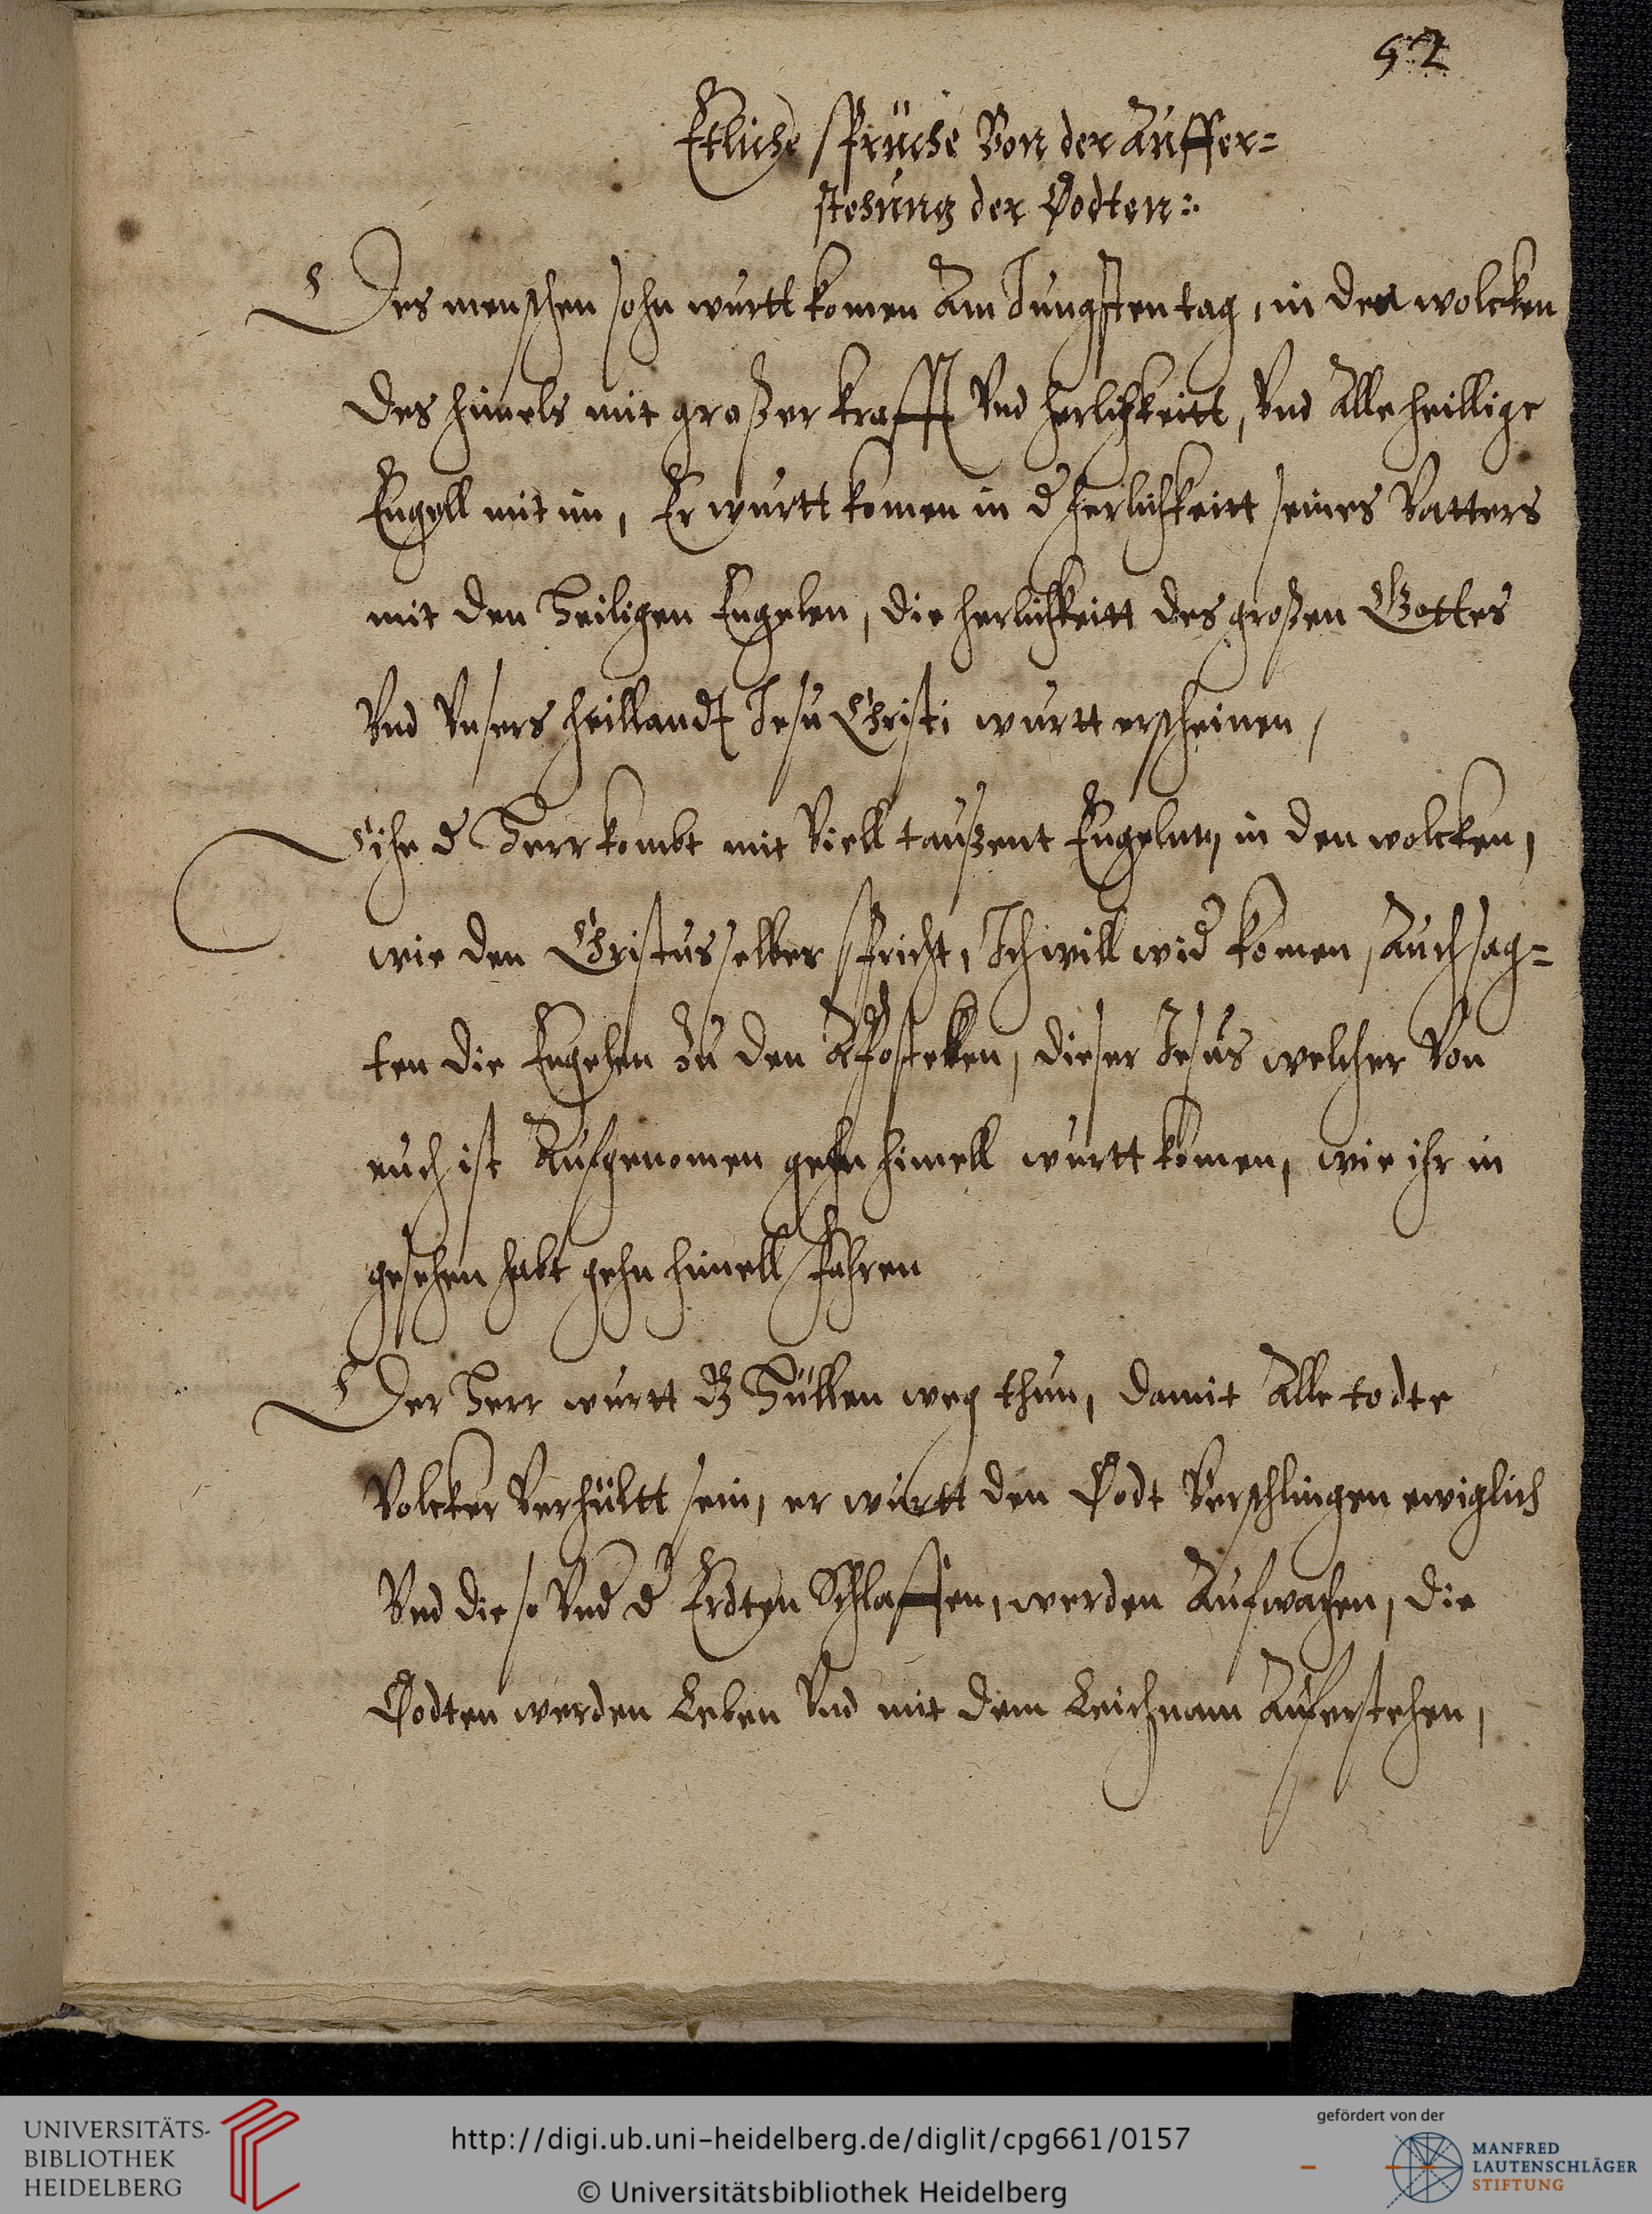 52
Etliche sprüche Von der Auffer=
stehung der Todten:.
Des menschen sohn wurtt komen Am Jungsten tag, in den wolcken
des himels mit großer krafft Vnd herlichkeitt, Vnd Alle heillige
Engell mit im, Er wurtt komen in d herlichkeitt seines Vatters
mit den Heiligen Engelen, die herlichkeitt des großen Gottes
Vnd Vnsers heillandt Jesu Christi wurtt erscheinen,
Sihe d Herr kombt mit Viell taußent Engelnn, in den wolcken,
wie den Christus selber spricht, Ich will wid komen, Auch sag=
ten die Engelen Zu den Apostellen, dieser Jesus welcher Von
euch ist Aufgenomen gehn himell wurtt komen, wie ihr in
gesehen habt gehn himell fahren
Der Herr wurtt dz Hüllen weg thun, damit Alle todte
Volcker Verhültt sein, er württ den Todt Verschlingen ewiglich
Vnd die so Vnd d Erdten Schlaffen, werden Aufwachen, die
Todten werden Leben Vnd mit dem Leichnam Auferstehen,
UNIVERSITÄTS-
BIBLIOTHEK
HEIDELBERG
http://digi.ub.uni-heidelberg.de/diglit/cpg661/0157
© Universitätsbibliothek Heidelberg
gefördert von der
MANFRED
LAUTENSCHLÄGER
STIFTUNG